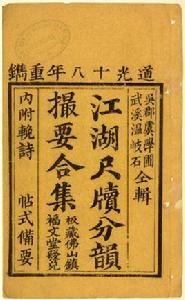 道光十八年重鐫
吳郡虞學圃
武溪溫岐石 仝輯
江湖尺牘分韻
撮要合集
板藏佛山鎮
福文堂發兌
內附輓詩 帖式備要